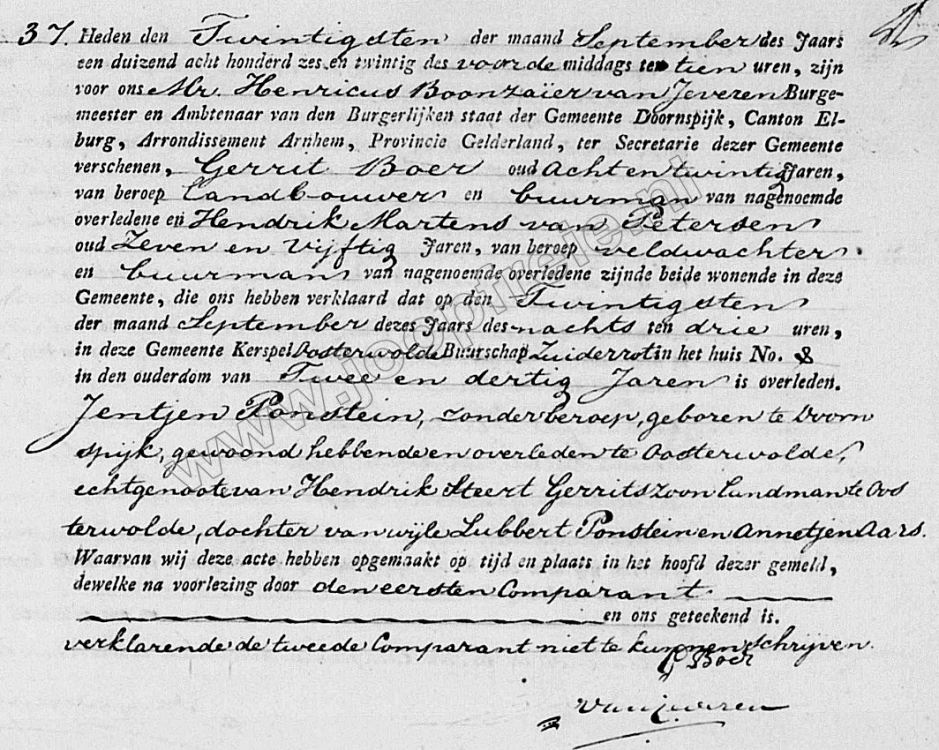 37. Heden den Twintigsten der maand September des Jaars
een duizend acht honderd zes en twintig des voorde middags te tien uren, zijn
voor ons Mr. Henricus Boonzaïer van Jeveren Burge-
meester en Ambtenaar van den Burgerlijken staat der Gemeente Doornspijk, Canton El-
burg, Arrondissement Arnhem, Provincie Gelderland, ter Secretarie dezer Gemeente
verschenen, Gerrit Boer oud Acht en twintig Jaren,
van beroep Landbouwer en buurman van nagenoemde
overledene en Hendrik Martens van Petersen
oud Zeven en Vijftig Jaren, van beroep veldwachter
en buurman van nagenoemde overledene zijnde beide wonende in deze
Gemeente, die ons hebben verklaard dat op den Twintigsten
der maand September dezes Jaars des nachts ten drie uren,
in deze Gemeente Kerspel Oosterwolde Buurschap Zuiderrot in het huis No. 8
in den ouderdom van Twee en dertig Jaren is overleden.
Jentjen Ponstein, zonder beroep, geboren te Doorn
spijk, gewoond hebbende en overleden te Oosterwolde,
echtgenoote van Hendrik Steert Gerritszoon Landman te Oos
terwolde, dochter van wijle Lubbert Ponstein en Annetjen Aars.
Waarvan wij deze acte hebben opgemaakt op tijd en plaats in het hoofd dezer gemeld,
dewelke na voorlezing door den eersten Comparant
en ons geteekend is.
verklarende de tweede Comparant niet te kunnen schrijven.
G Boer
van Jeveren
www.jooptreie.nl